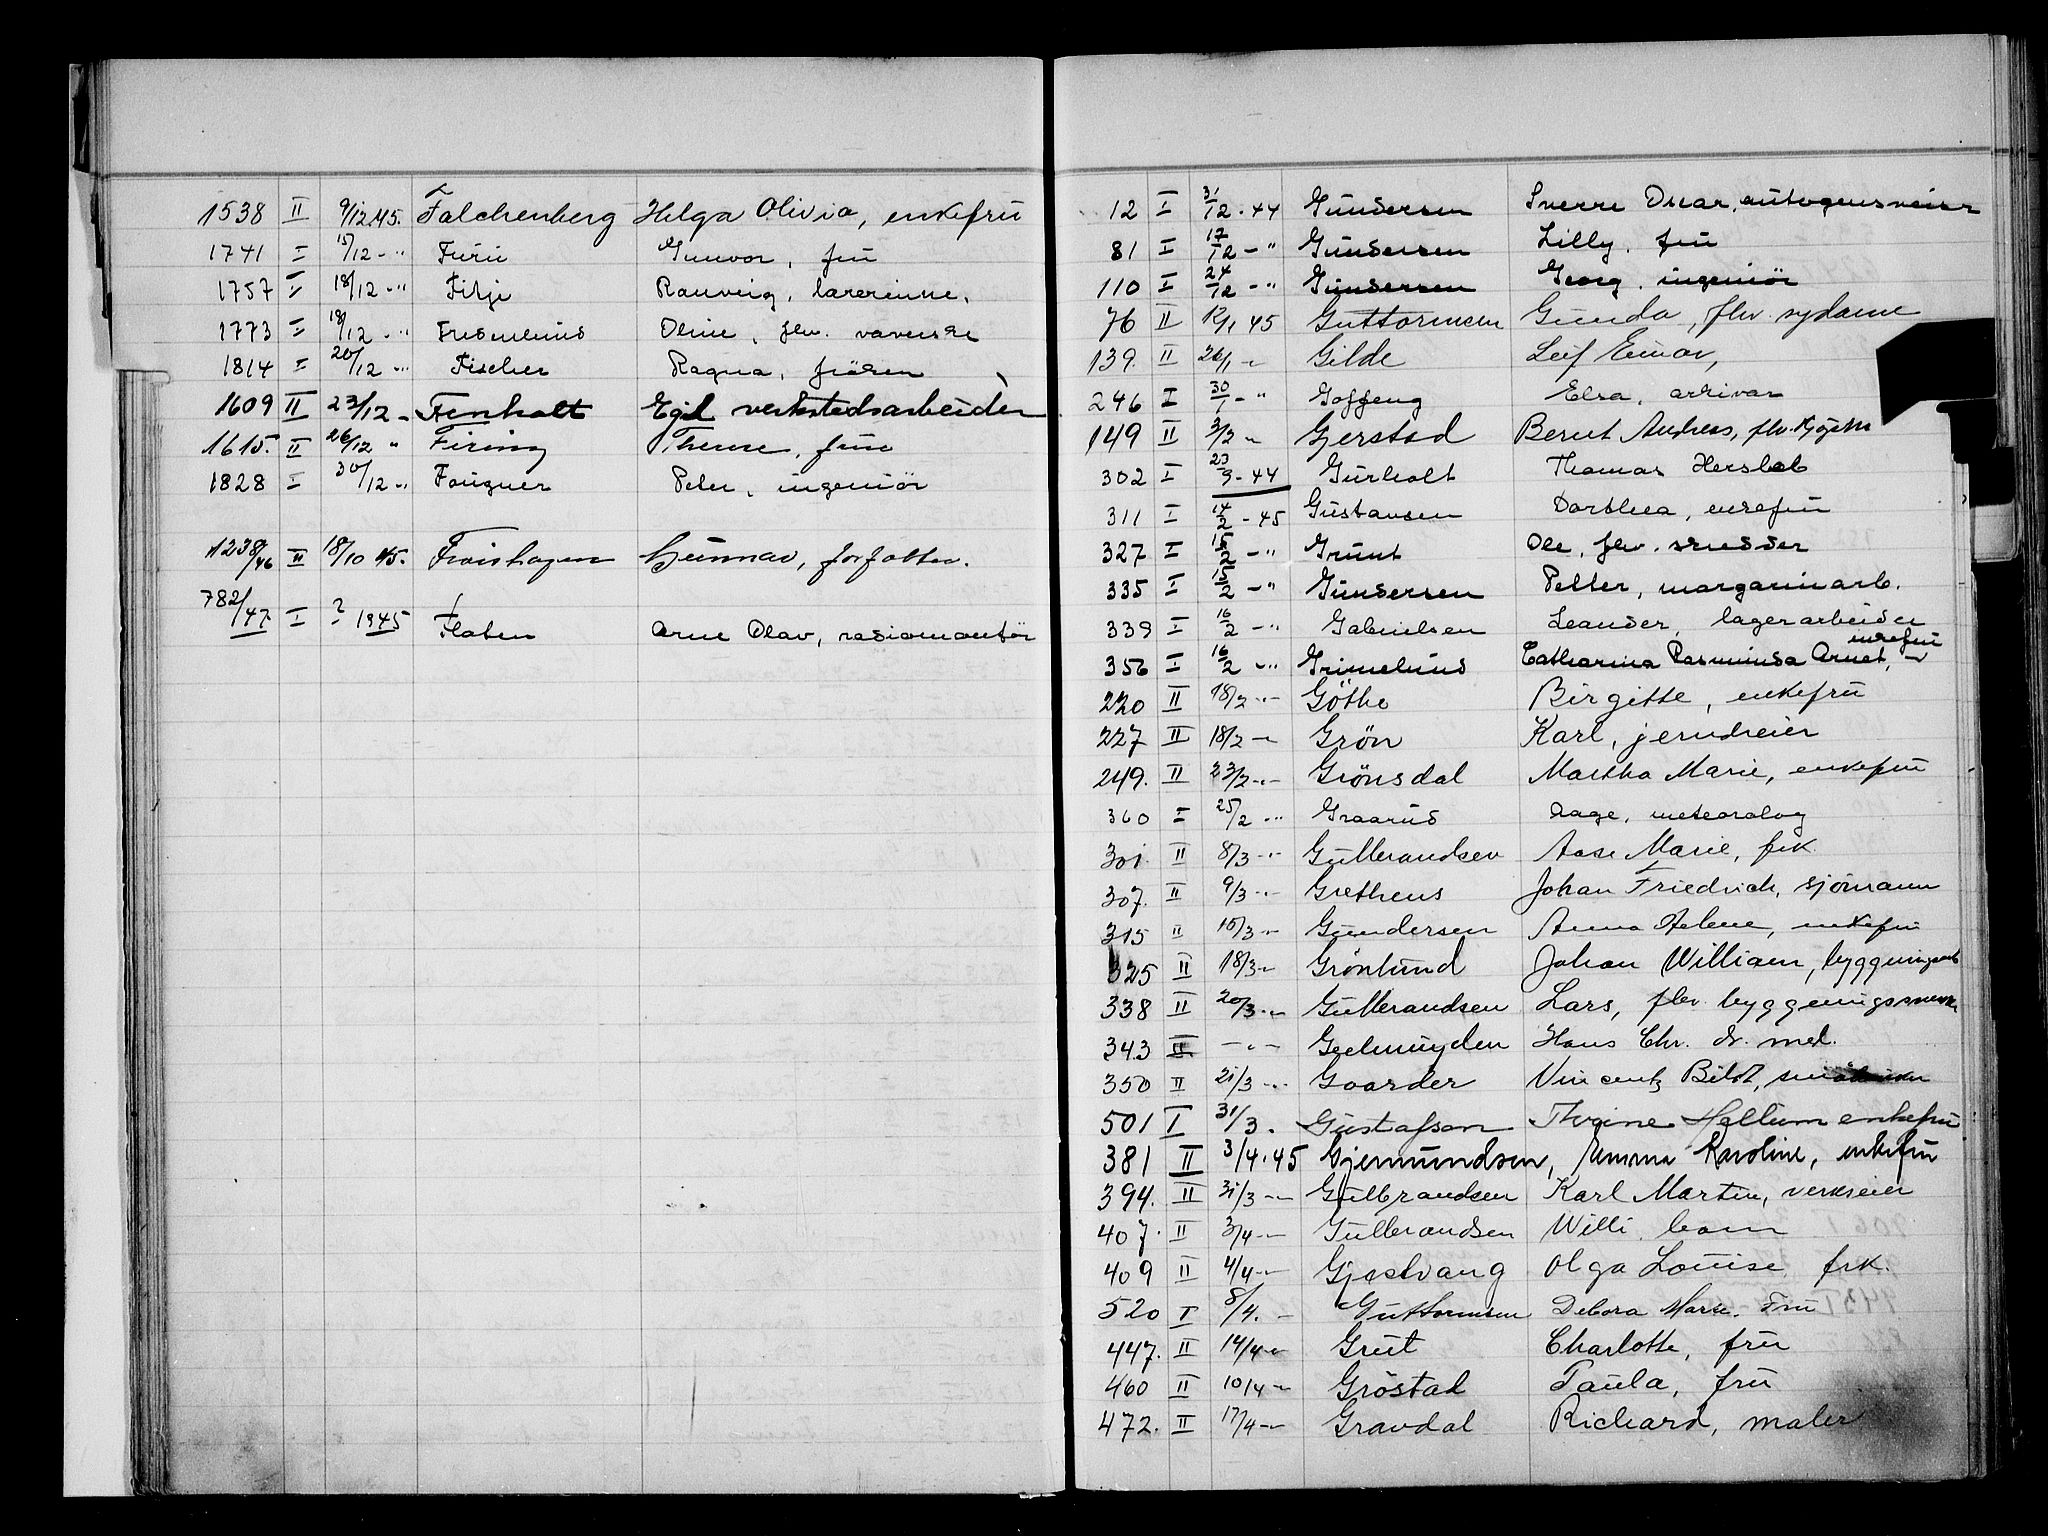 1538 II 9/12.45. Falchenberg Helga Olivia, enkefru
1741 I 15/12 -" Furu Gunvor, fru
1757 I 18/12 -" Filje Ranveig, lærerinne.
1773 I 18/12 -" Fredenlund Oline, fhv. væverske
1814 I 20/12 -" Fischer Ragna, frøken
1609 II 23/12 - Fenholt Egil verkstedsarbeider
1615. II 26/12 " Firing fru
1828 I 30/12 -" Fougner Peter, ingeniør
1238/46 II 18/10 45. Froishagen Gunnar, forfatter.
782/47 I ? 1945 Floten Arne Olav, radiomontør
12 I 31/12 - 44 Gundersen Sverre Oscar, autogensveiser
81 I 17/12 -" Gundersen Lilly, fru
110 I 24/12 -" Gundersen Georg, ingeniør
76 II 12/1 45 Guttormsen Gunda, fhv. sydame
139. II 26/1 - Gilde Leif Einar,
246 I 30/1 -" Goffeng Elsa, arkivar
149 II 3/2 - Gjerstad Bernt Andreas, fhv.
302 I 23/9 - 44 Gurholt Thomas Herslab
311 I 14/2 - 45 Gustavsen Dorthea, enkefru
327 I 15/2 -" Grunt Ole, fhv. skredder
335 I 15/2 -" Gundersen Petter, margarinarb.
339 I 16/2 -" Gabrielsen Leander, lagerarbeider
enkefru
356 I 16/2 -" Grimelund Catharina Rasminda Arnet,
220 II 18/2 -"- Göthe Birgitte, enkefru
227 II 18/2 - Grön Karl, jerndreier
249. II 23/2 -"- Grönsdal Martha Marie, enkefru
360 I 25/2 -" Graarud Aage, meteorolog
301. II 8/3 -"- Gulbrandsen Aase Marie, frk
307. II 9/3 -"- Grethens Johan Friedrich, sjömann
315 II 15/3 -- Gundersen Anna Helene, enkefru
325 II 18/3 - Grönlund Johan William, bygningsarb
338 II 20/3 -"- Gulbrandsen Lars, fhv. byggningssnekk
343 II -"- Geelmuyden Hans Chr. dr. med.
350 II 21/3 -"- Gaarder Vincentz Bildt,
501 I 31/3. Gustafson Thrine Hellum enkefru
381 II 3/4.45 Gjemundsen, Emma Karoline, enkefru
394. II 31/3 -"- Gulbrandsen Karl Martin, verkseier
407. II 3/4 -"- Gulbrandsen Willi, barn
409 II 4/4 -"- Gjestvang Olga Louise, frk.
520 I 8/4. - Guttormsen Debora Marie. Fru
447. II 14/4 -"- Grut Charlotte, fru
460 II 10/4 - Gröstad Paula, fru
472. II 17/4 -"- Gravdal Richard, maler